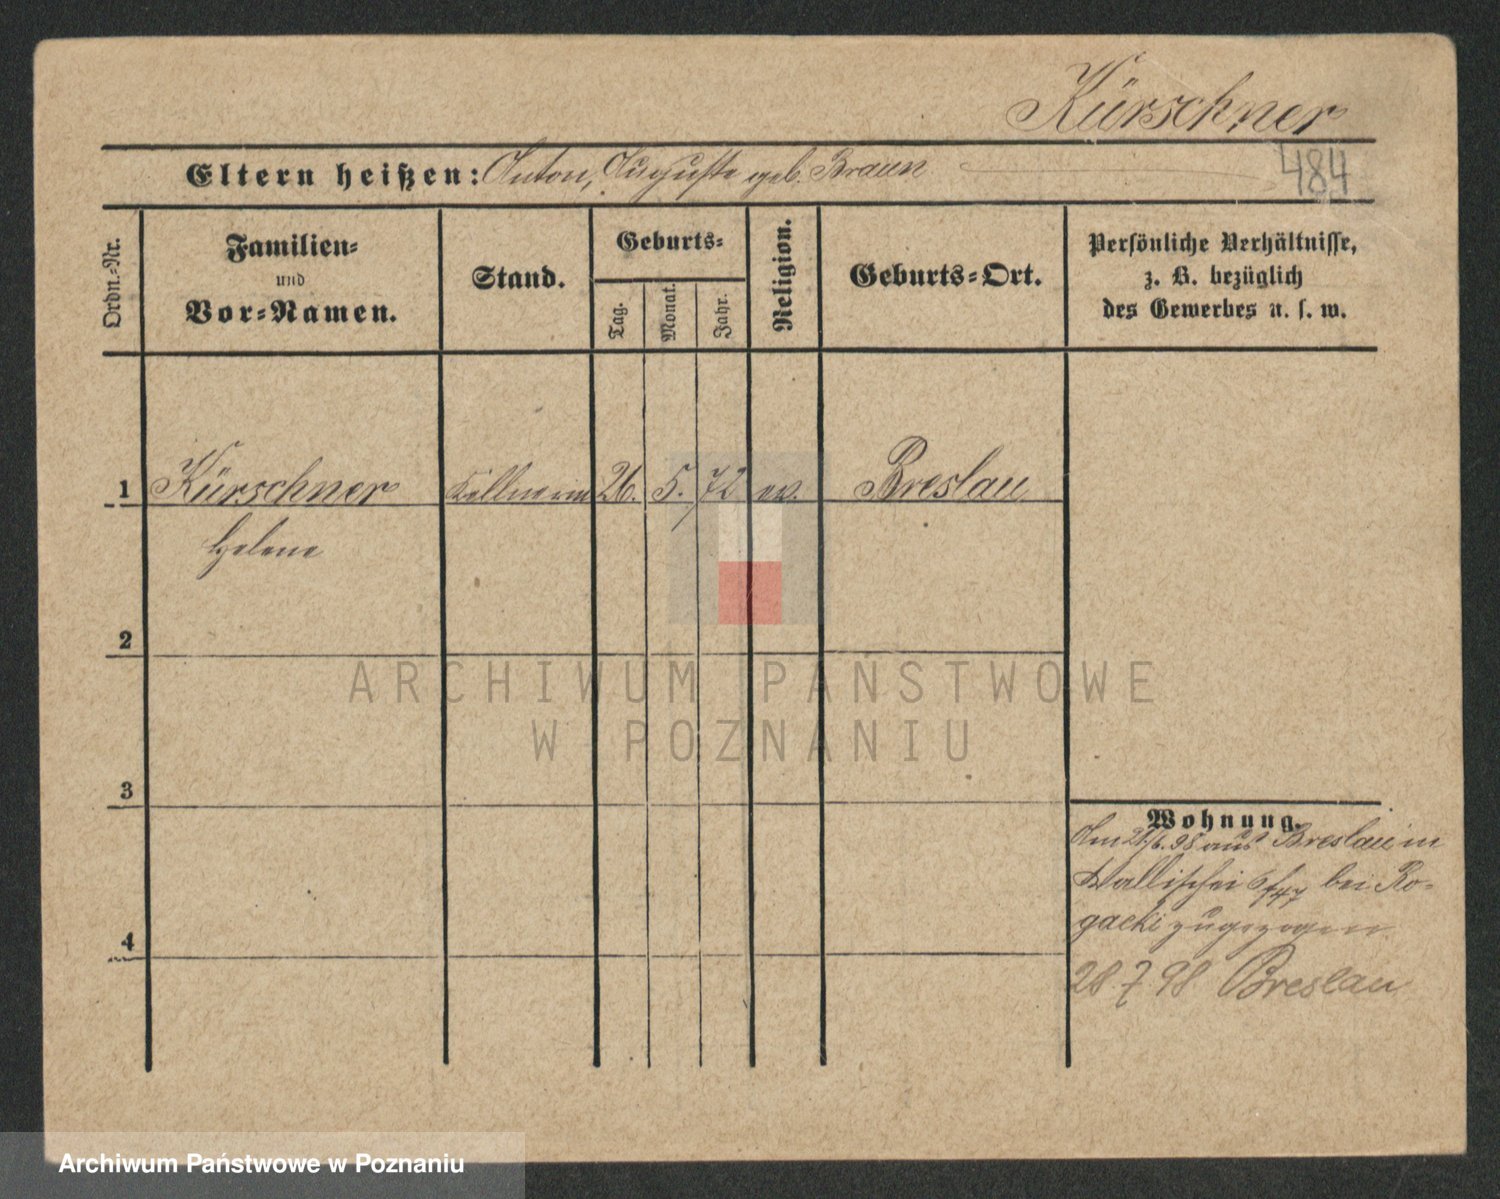 Kürschner
Eltern heißen: Anton, Auguste geb. Braun
484
Ordn.-Nr.
Familien-
und
Vor-Namen.
Stand.
Geburts-
Tag.
Monat.
Jahr.
Religion.
Geburts-Ort.
Persönliche Verhältnisse,
z. B. bezüglich
des Gewerbes u. s. w.
1 Kürschner Kellnerin 26. 5. 72 ev. Breslau
Helene
2
3
4
Wohnung.
Am 21/6. 98 aus Breslau in
Wallischei bei Ro-
gacki zugezogen
28 7 98 Breslau
ARCHIWUM PAŃSTWOWE
W POZNANIU
Archiwum Państwowe w Poznaniu